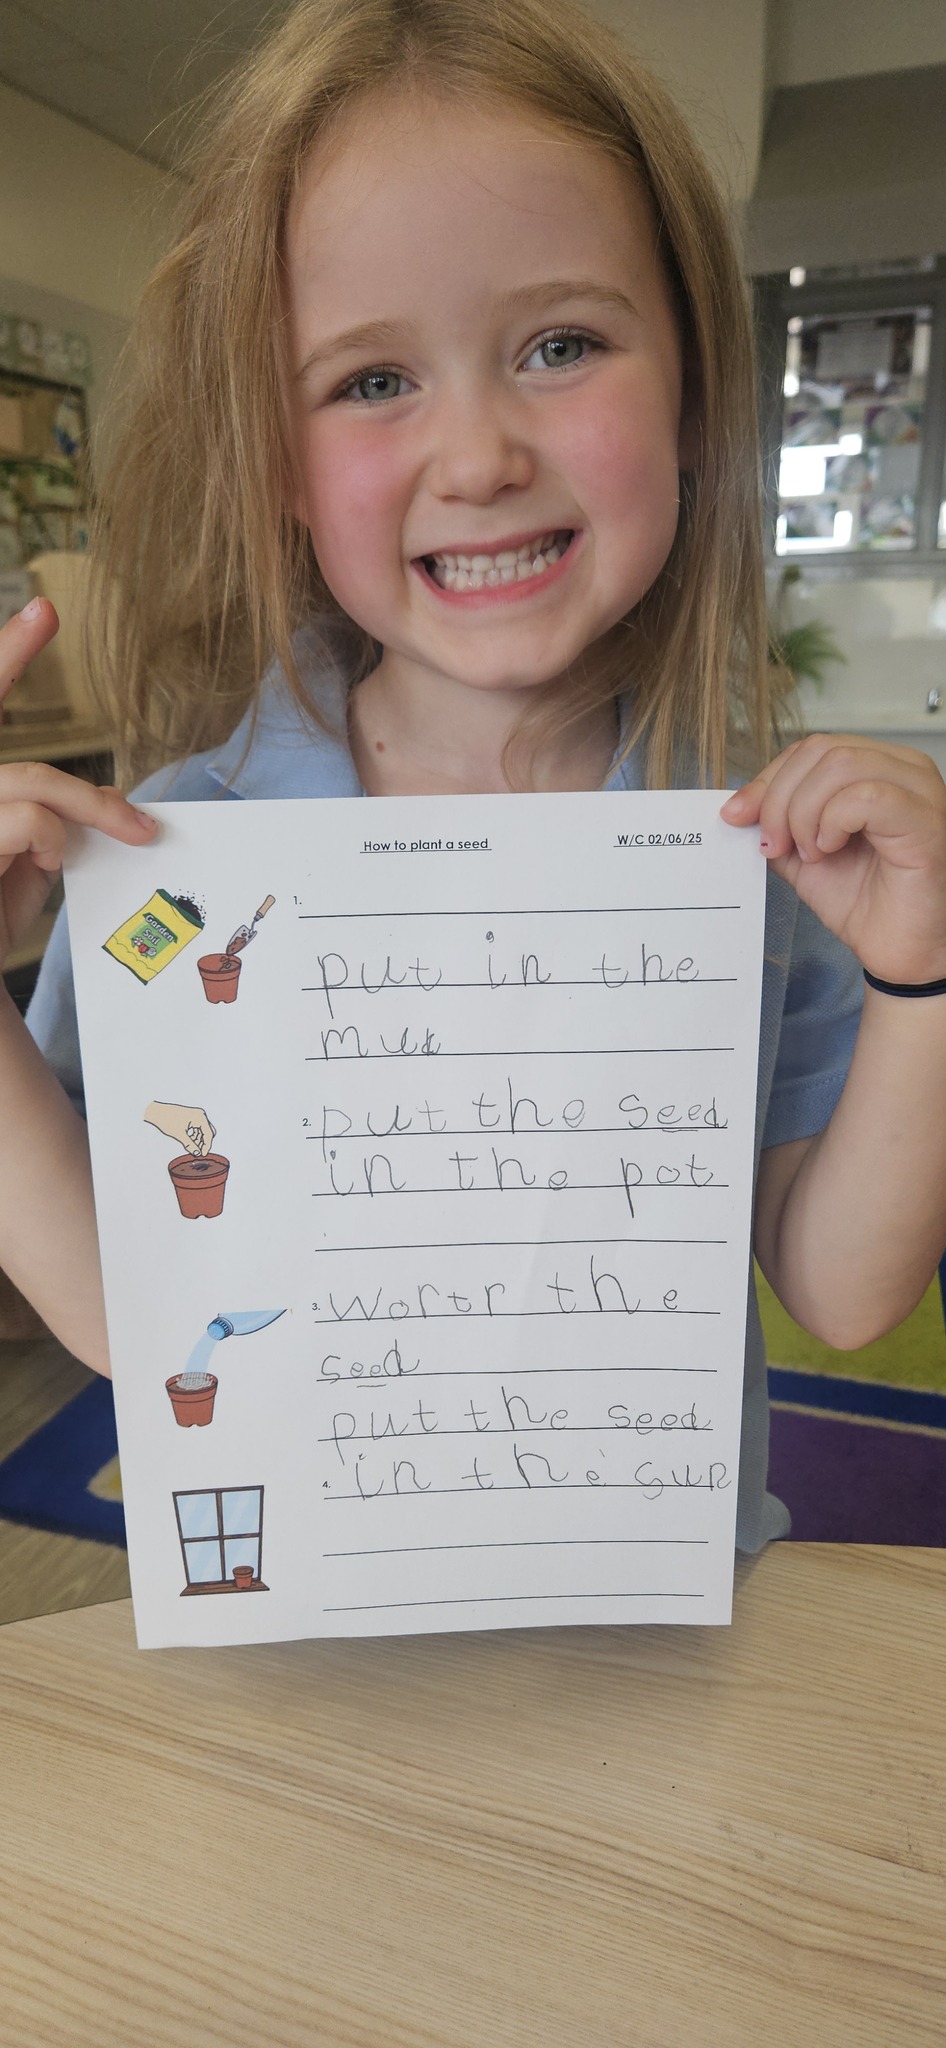 How to plant a seed
W/C 02/06/25
Garden
Soil
1.
put in the
muk
2. put the seed
in the pot
3. wortr the
seed
put the seed
4. in the sun